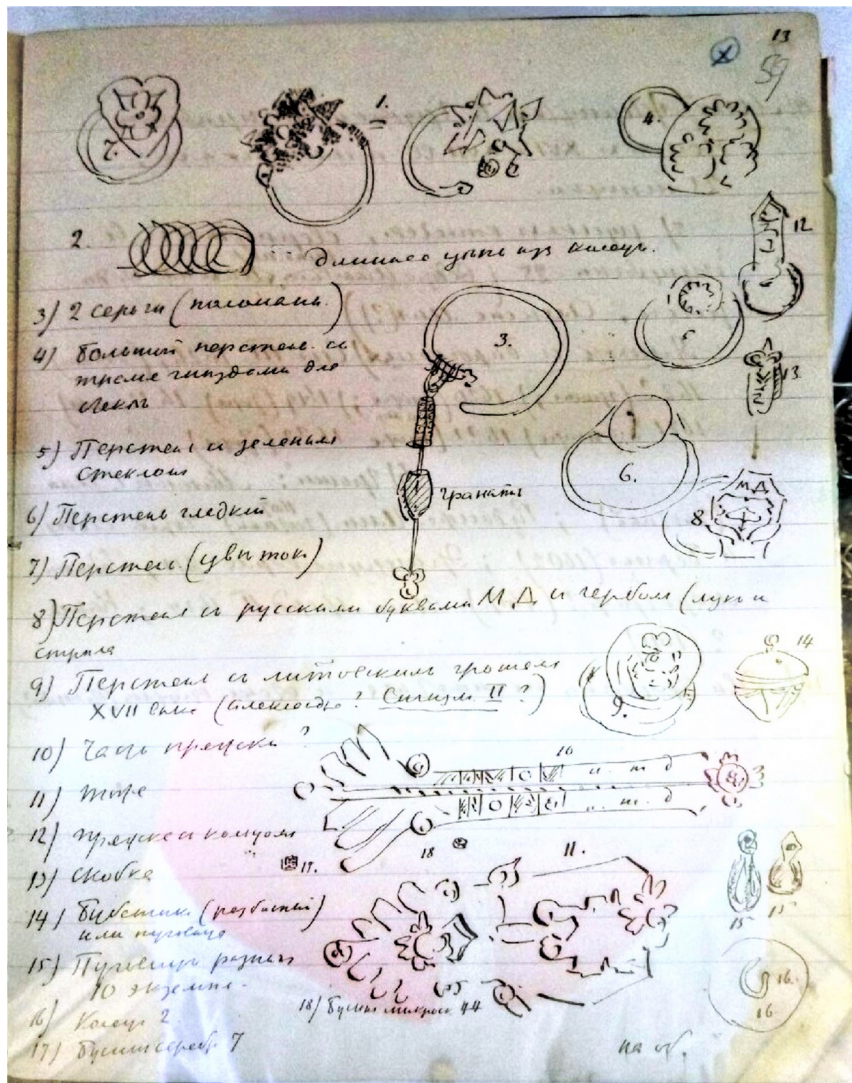 13
59
1.
4.
2. длинная цепь из колец.
12
3) 2 серьги (поломаны)
3.
4) Большой перстень с
тремя гнездами для
стекл
13.
5) Перстень с зеленым
стеклом
6.
гранать
МД
8
6) Перстень гладкий
7) Перстень (цвѣток)
8) Перстень с русскими буквами М.Д. и гербом (лук и
стрела
9) Перстень с литовским грошем
XVII века ( ? Сигизм II ?)
9.
14
10) Часть пряжки ?
10
и. т. д
и. т. д
11) тоже
12) пряжка с кольцом
17.
18
11.
13) скобка
14) Бубенчик (разбитый)
или пуговица
15
15
15) Пуговицы разные
10 экземпл.
16.
16
18) Бусины мелкие 44
16) Колец 2
17) Бусин серебр 7
на об.